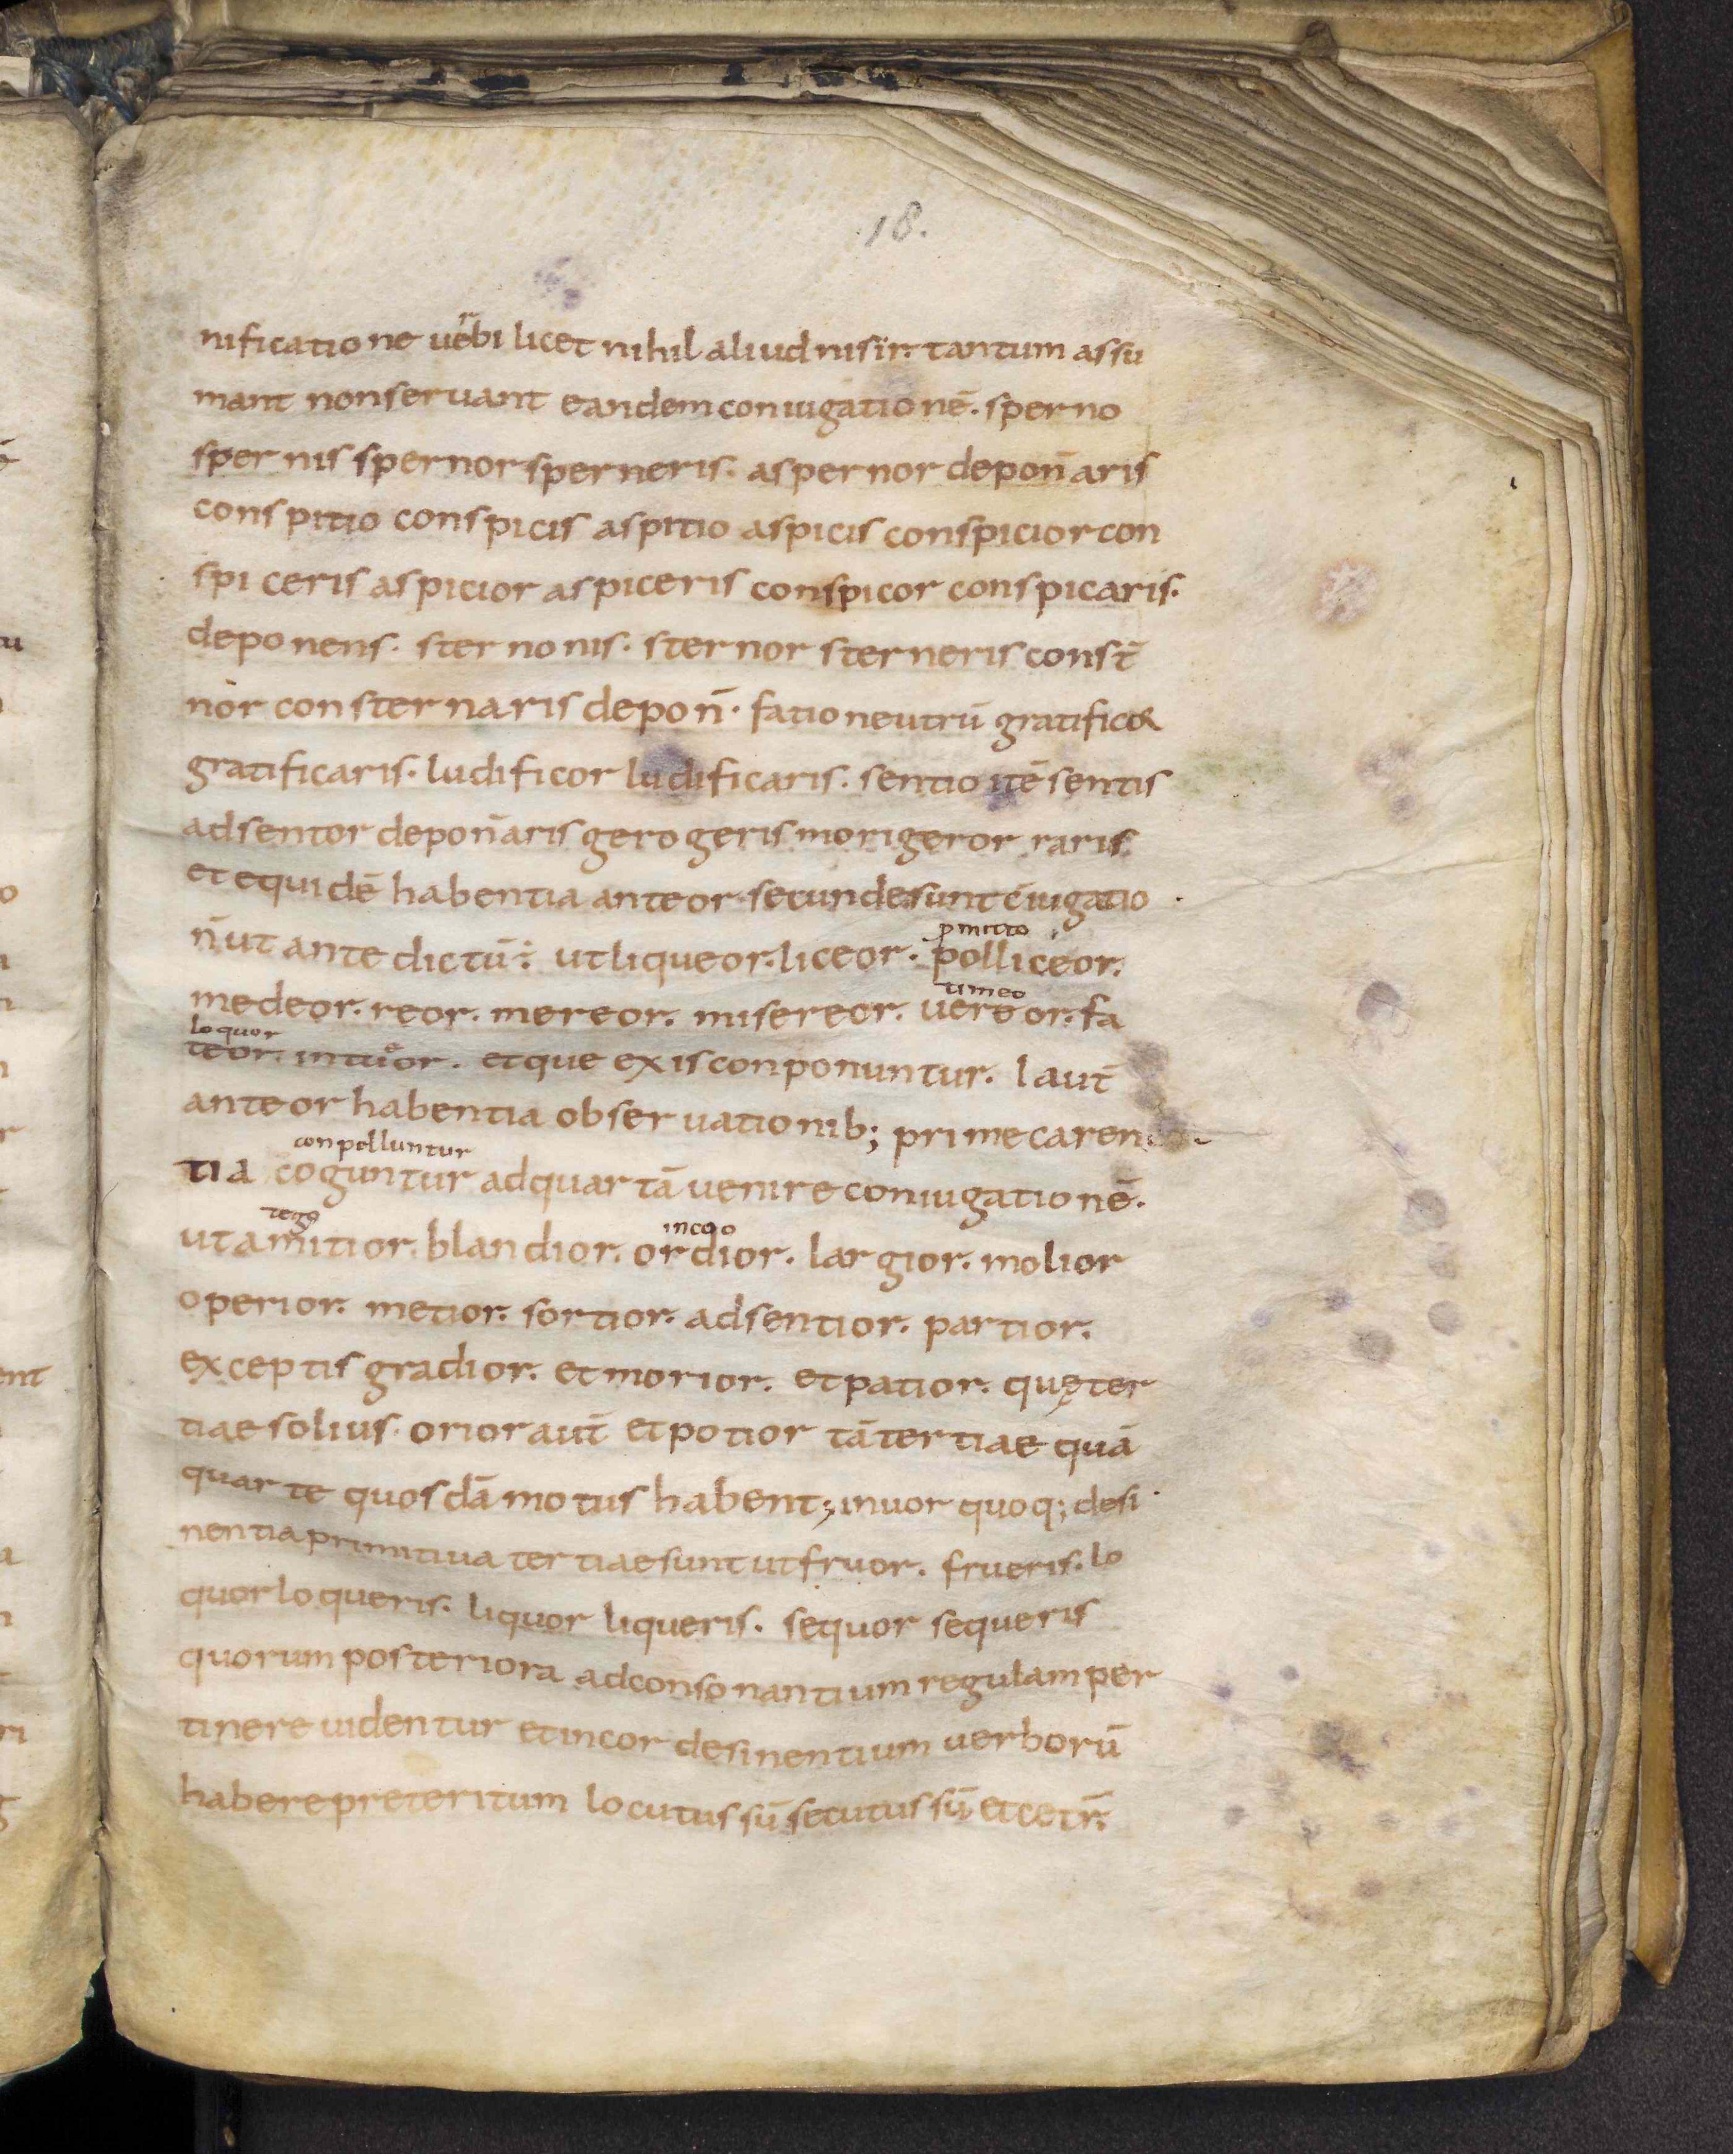 18.
nificatione uerbi licet nihil aliud nisi r. tantum assu
mant non seruant eandem coniugationē. sperno
spernis spernor sperneris. aspernor depon̄ aris
conspitio conspicis aspitio aspicis conspicior con
spiceris aspicior aspiceris conspicor conspicaris.
deponens. sterno nis. sternor sterneris const̄
nor consternaris depon̄. fatio neutrū gratificor
gratificaris. ludificor ludificaris. sentio itē sentis
adsentor depon̄ aris gero geris morigeror raris
et equidē habentia ante or. secunde sunt c̄iugatio
pmitto
n̄ ut ante dictū; ut liqueor. liceor. polliceor.
timeo
medeor. reor. mereor. misereor. uereor. fa
loquor
teor. intueor. et que ex is conponuntur. I aut̄
ante or habentia obseruationib; prime caren
conpelluntur
tia coguntur ad quartā uenire coniugationē.
tego incoo
ut amitior. blandior. ordior. largior. molior
operior. metior. sortior. adsentior. partior.
exceptis gradior. et morior. et patior. quę ter
tiae solius. orior aut̄ et potior tā tertiae quā
quarte quosdā motus habent; in uor quoq; desi
nentia primitiua tertiae sunt ut fruor. frueris. lo
quor loqueris. liquor liqueris. sequor sequeris
quorum posteriora ad consonantium regulam per
tinere uidentur et in cor desinentium uerborū
habere preteritum locutus sū secutus sū et cetr̄.